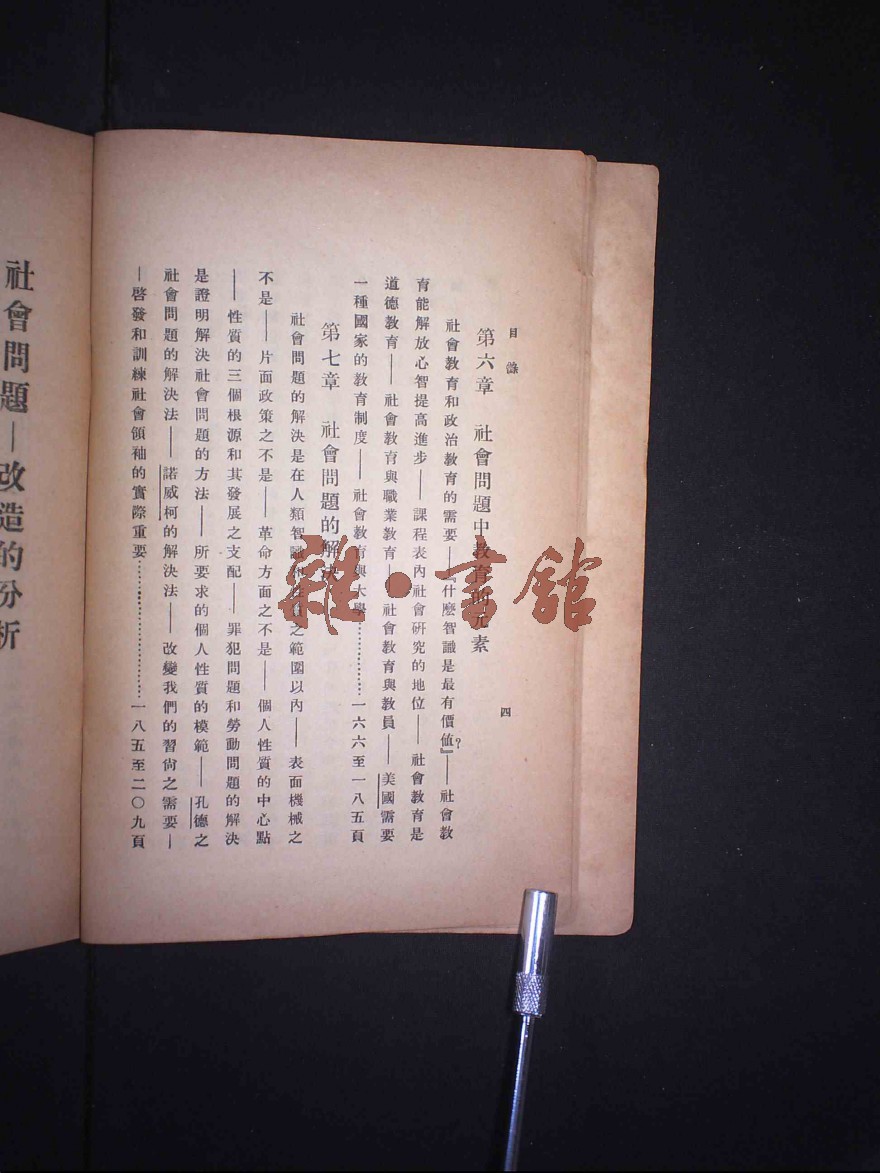 目錄 四
第六章 社會問題中教育的元素
社會教育和政治教育的需要——『什麼智識是最有價值?』——社會教
育能解放心智提高進步——課程表內社會研究的地位——社會教育是
道德教育——社會教育與職業教育——社會教育與教員——美國需要
一種國家的教育制度——社會教育與大學……………一六六至一八五頁
第七章 社會問題的解決
社會問題的解決是在人類智識和性質之範圍以內——表面機械之
不是——片面政策之不是——革命方面之不是——個人性質的中心點
——性質的三個根源和其發展之支配——罪犯問題和勞動問題的解決
是證明解決社會問題的方法——所要求的個人性質的模範——孔德之
社會問題的解決法——諾威柯的解決法——改變我們的習尙之需要—
—啓發和訓練社會領袖的實際重要……………一八五至二〇九頁
社會問題—改造的分析
雜·書館